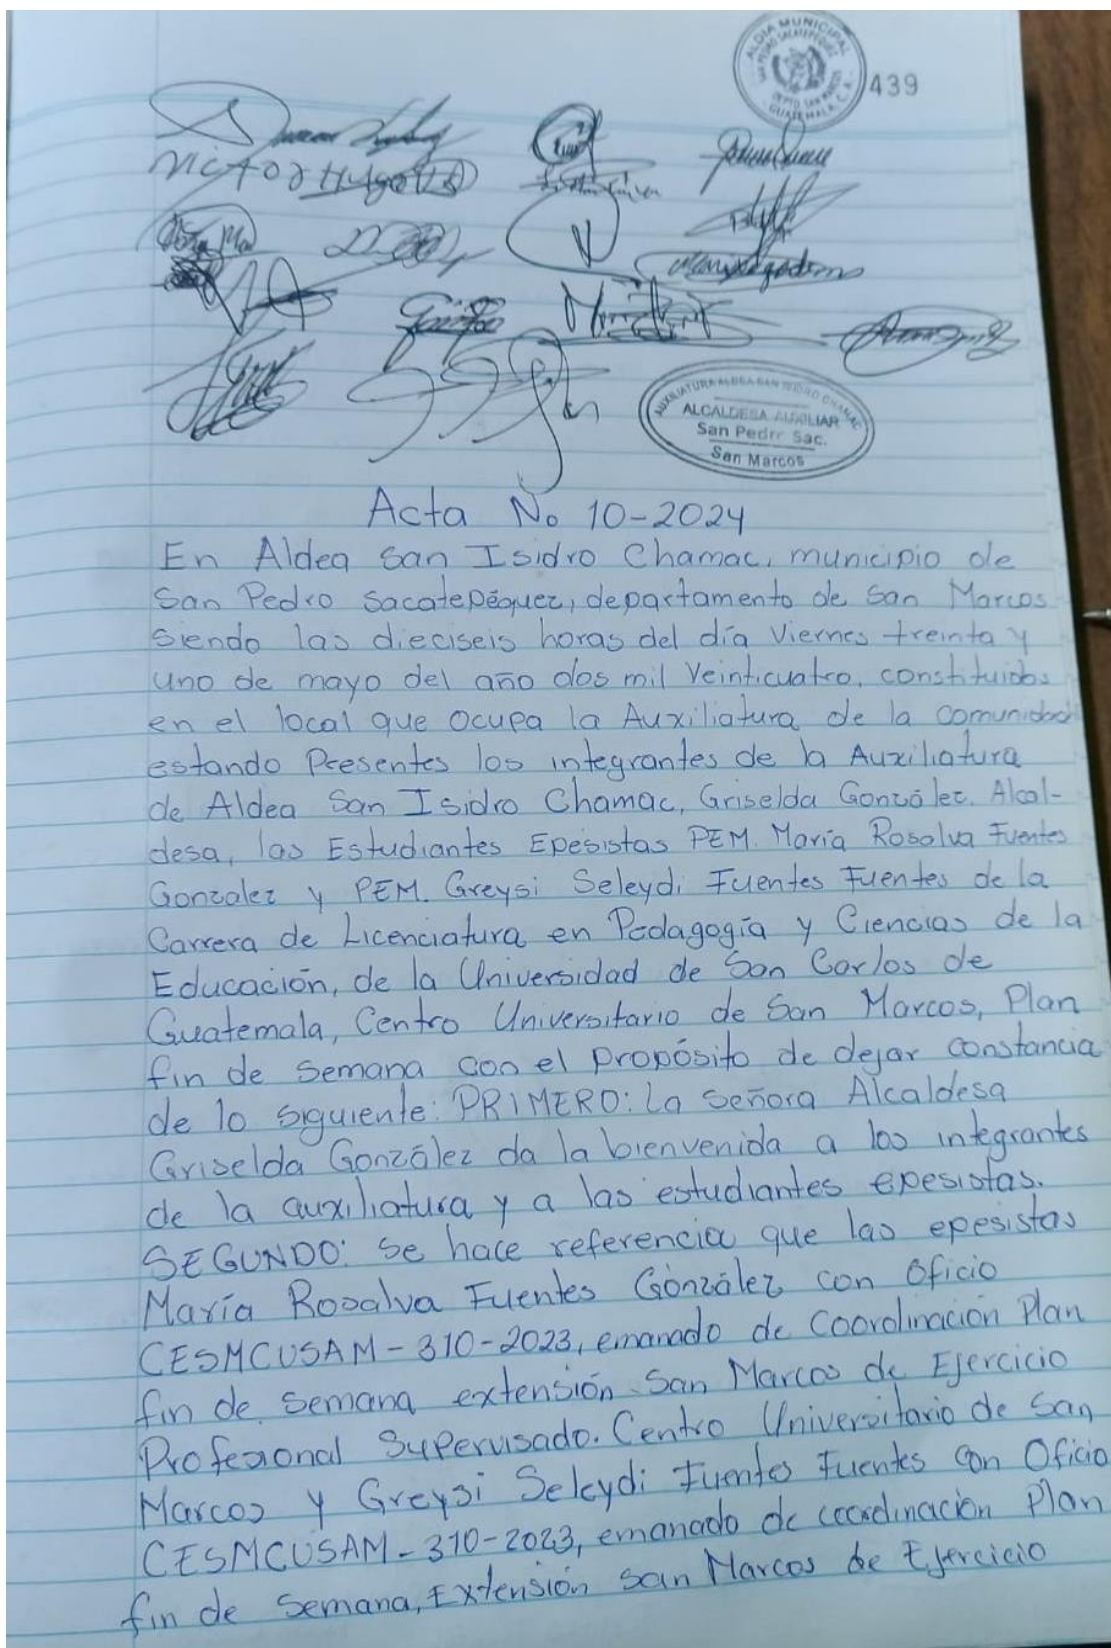 ALDIA MUNICIPAL
SAN PEDRO SACATEPEQUEZ
DEPTO. SAN MARCOS
GUATEMALA, C. A.
439
Victor Hugo
AUXILIATURA ALDEA SAN ISIDRO CHAMAC
ALCALDESA AUXILIAR
San Pedro Sac.
San Marcos
Acta No 10-2024
En Aldea San Isidro Chamac, municipio de
San Pedro Sacatepéquez, departamento de San Marcos
siendo las dieciseis horas del día Viernes treinta y
uno de mayo del año dos mil Veinticuatro, constituidos
en el local que ocupa la Auxiliatura de la comunidad
estando Presentes los integrantes de la Auxiliatura
de Aldea San Isidro Chamac, Griselda González. Alcal-
desa, las Estudiantes Epesistas PEM. María Rosalva Fuentes
Gonzalez y PEM. Greysi Seleydi Fuentes Fuentes de la
Carrera de Licenciatura en Pedagogía y Ciencias de la
Educación, de la Universidad de San Carlos de
Guatemala, Centro Universitario de San Marcos, Plan
fin de semana con el propósito de dejar constancia
de lo siguiente: PRIMERO: La señora Alcaldesa
Griselda González da la bienvenida a los integrantes
de la auxiliatura y a las estudiantes epesistas.
SEGUNDO: Se hace referencia que las epesistas
María Rosalva Fuentes González con Oficio
CESMCUSAM-310-2023, emanado de Coordinación Plan
fin de semana extensión San Marcos de Ejercicio
Profesional Supervisado. Centro Universitario de San
Marcos y Greysi Seleydi Fuentes Fuentes con Oficio
CESMCUSAM-310-2023, emanado de coordinación Plan
fin de semana, Extensión San Marcos de Ejercicio